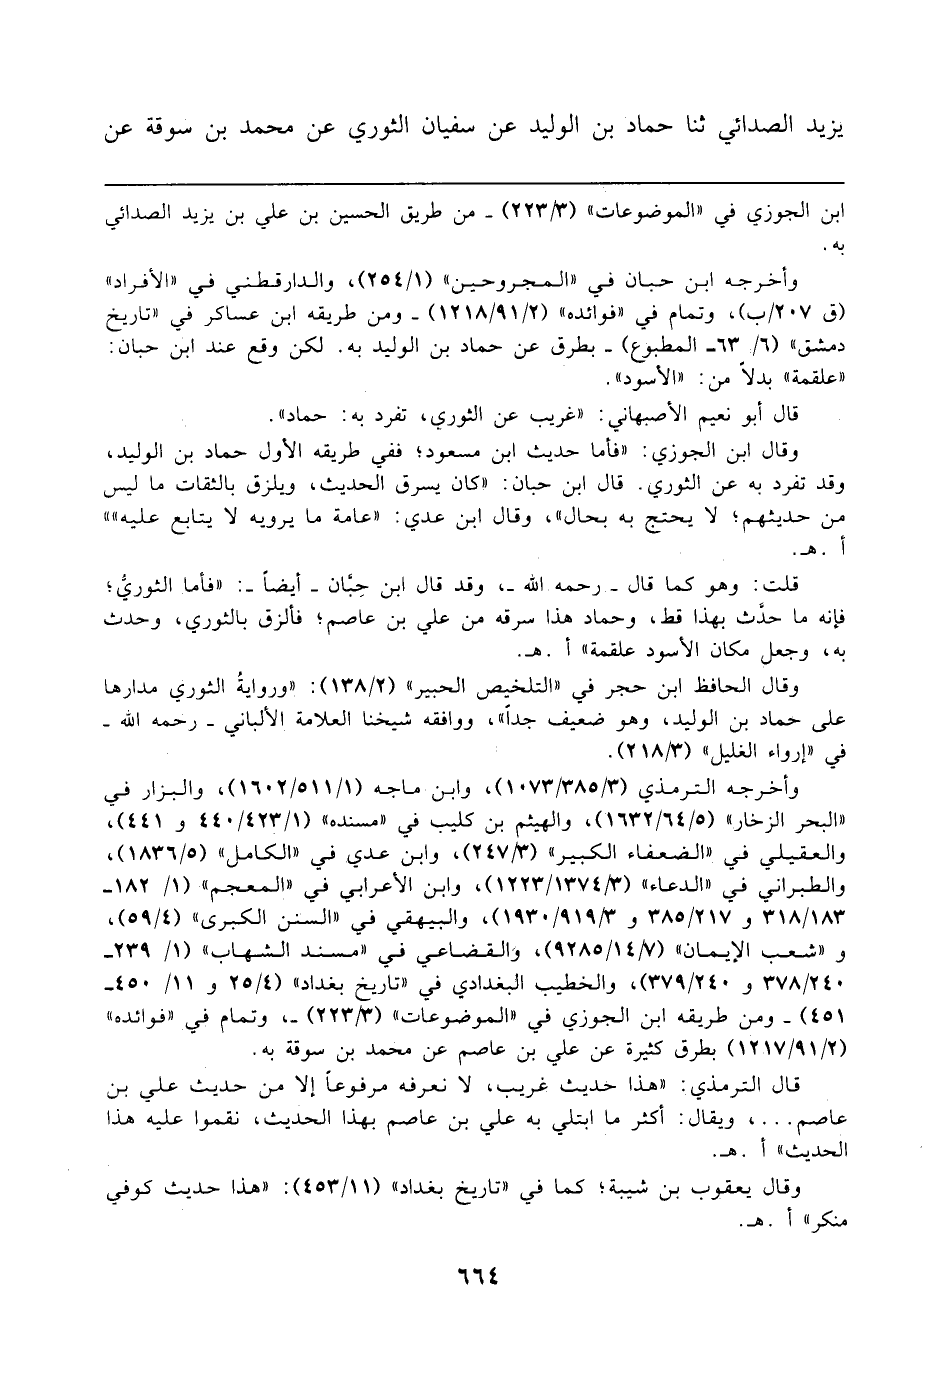 يزيد الصدائي ثنا حماد بن الوليد عن سفيان الثوري عن محمد بن سوقة عن
ابن الجوزي في «الموضوعات» (٢٢٣/٣) ـ من طريق الحسين بن علي بن يزيد الصدائي
به.
وأخرجه ابن حبان في «المجروحين» (٢٥٤/١)، والدارقطني في «الأفراد»
(ق ٢٠٧/ب)، وتمام في «فوائده» (١٢١٨/٩١/٢) ـ ومن طريقه ابن عساكر في «تاريخ
دمشق» (٦/ ٦٣ـ المطبوع) ـ بطرق عن حماد بن الوليد به. لكن وقع عند ابن حبان:
«علقمة» بدلاً من: «الأسود».
قال أبو نعيم الأصبهاني: «غريب عن الثوري، تفرد به: حماد».
وقال ابن الجوزي: «فأما حديث ابن مسعود؛ ففي طريقه الأول حماد بن الوليد،
وقد تفرد به عن الثوري. قال ابن حبان: «كان يسرق الحديث، ويلزق بالثقات ما ليس
من حديثهم؛ لا يحتج به بحال»، وقال ابن عدي: «عامة ما يرويه لا يتابع عليه»»
أ .هـ.
قلت: وهو كما قال ـ رحمه الله ـ، وقد قال ابن حِبَّان ـ أيضاً ـ: «فأما الثوريُّ؛
فإنه ما حدَّث بهذا قط، وحماد هذا سرقه من علي بن عاصم؛ فألزق بالثوري، وحدث
به، وجعل مكان الأسود علقمة» أ .هـ.
وقال الحافظ ابن حجر في «التلخيص الحبير» (١٣٨/٢): «وروايةُ الثوري مدارها
على حماد بن الوليد، وهو ضعيف جداً»، ووافقه شيخنا العلامة الألباني ـ رحمه الله ـ
في «إرواء الغليل» (٢١٨/٣).
وأخرجه الترمذي (١٠٧٣/٣٨٥/٣)، وابن ماجه (١٦٠٢/٥١١/١)، والبزار في
«البحر الزخار» (١٦٣٢/٦٤/٥)، والهيثم بن كليب في «مسنده» (٤٤٠/٤٢٣/١ و ٤٤١)،
والعقيلي في «الضعفاء الكبير» (٢٤٧/٣)، وابن عدي في «الكامل» (١٨٣٦/٥)،
والطبراني في «الدعاء» (١٢٢٣/١٣٧٤/٣)، وابن الأعرابي في «المعجم» (١/ ١٨٢ـ
٣١٨/١٨٣ و ٣٨٥/٢١٧ و ١٩٣٠/٩١٩/٣)، والبيهقي في «السنن الكبرى» (٥٩/٤)،
و «شعب الإيمان» (٩٢٨٥/١٤/٧)، والقضاعي في «مسند الشهاب» (١/ ٢٣٩ـ
٣٧٨/٢٤٠ و ٣٧٩/٢٤٠)، والخطيب البغدادي في «تاريخ بغداد» (٢٥/٤ و ١١/ ٤٥٠ـ
٤٥١) ـ ومن طريقه ابن الجوزي في «الموضوعات» (٢٢٣/٣) ـ، وتمام في «فوائده»
(١٢١٧/٩١/٢) بطرق كثيرة عن علي بن عاصم عن محمد بن سوقة به.
قال الترمذي: «هذا حديث غريب، لا نعرفه مرفوعاً إلا من حديث علي بن
عاصم...، ويقال: أكثر ما ابتلي به علي بن عاصم بهذا الحديث، نقموا عليه هذا
الحديث» أ .هـ.
وقال يعقوب بن شيبة؛ كما في «تاريخ بغداد» (٤٥٣/١١): «هذا حديث كوفي
منكر» أ .هـ.
٦٦٤